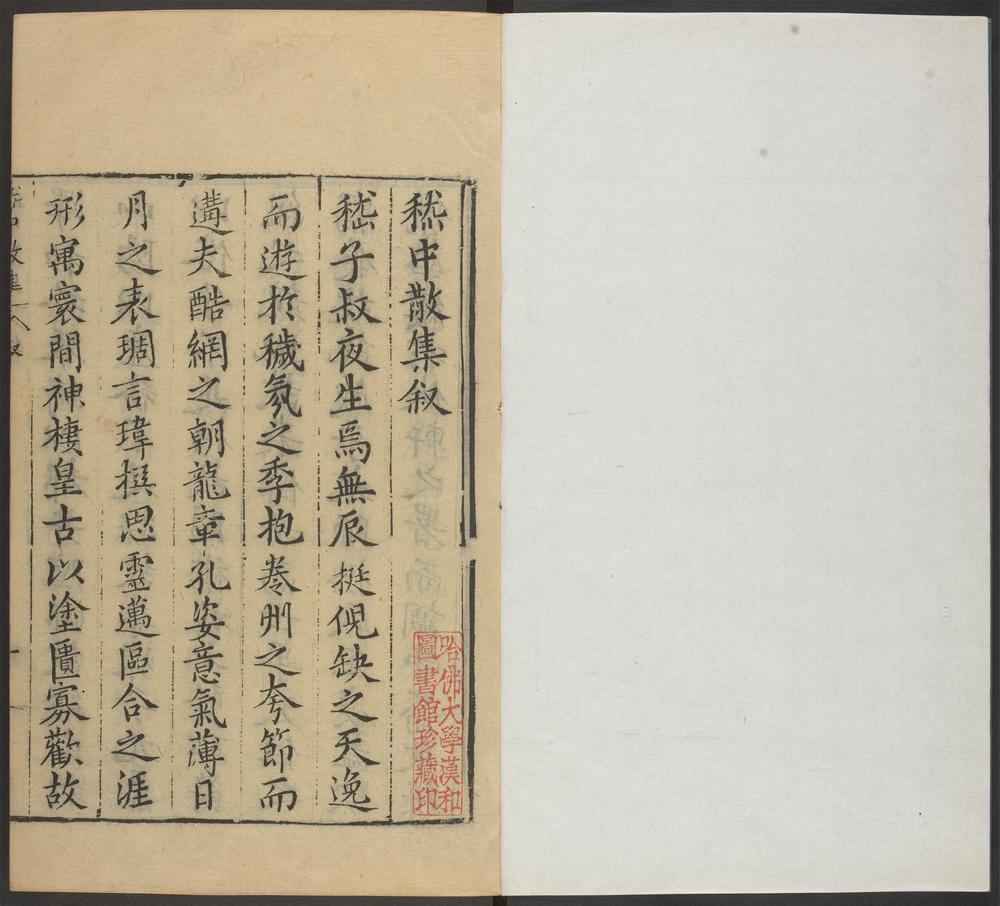 嵇中散集叙
嵇子叔夜生焉無辰挺倪缺之天逸
而遊於穢氛之季抱卷州之夸節而
遘夫酷網之朝龍章孔姿意氣薄日
月之表琱言瑋撰思靈邁區合之涯
形寓寰間神棲皇古以塗匱寡歡故
哈佛大學漢和
圖書館珍藏印